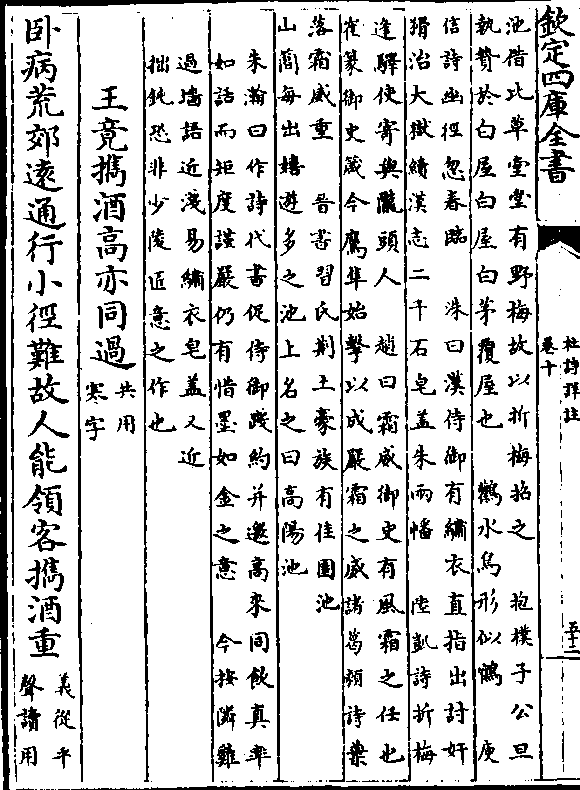 欽定四庫全書
杜詩詳註
卷十
五十二
池借比草堂堂有野梅故以折梅招之　抱樸子公旦
執贄於白屋白屋白茅覆屋也　鸛水鳥形似鶴　庾
信詩幽徑忽春臨　洙曰漢侍御有繡衣直指出討奸
猾治大獄續漢志二千石皂盖朱兩幡　陸凱詩折梅
逢驛使寄與隴頭人　趙曰霜威御史有風霜之任也
崔篆御史箴今鷹隼始擊以成嚴霜之威諸葛頴詩葉
落霜威重　晉書習氏荆土豪族有佳園池
山簡每出嬉遊多之池上名之曰高陽池
朱瀚曰作詩代書促侍御踐約并邀高來同飲真率
如話而矩度謹嚴仍有惜墨如金之意　今按隣雞
過墻語近淺易繡衣皂盖又近
拙鈍恐非少陵匠意之作也
王竟攜酒高亦同過
共用
寒字
卧病荒郊遠通行小徑難故人能領客攜酒重
義從平
聲讀用